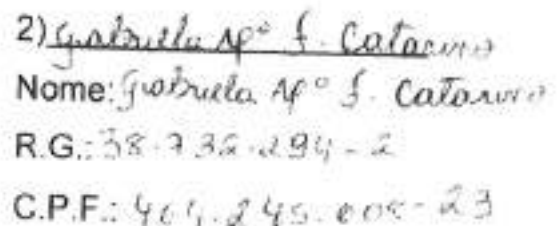 2) Gabriela Apº f. Catarino
Nome: Gabriela Apº f. Catarino
R.G.: 38.732.294-2
C.P.F.: